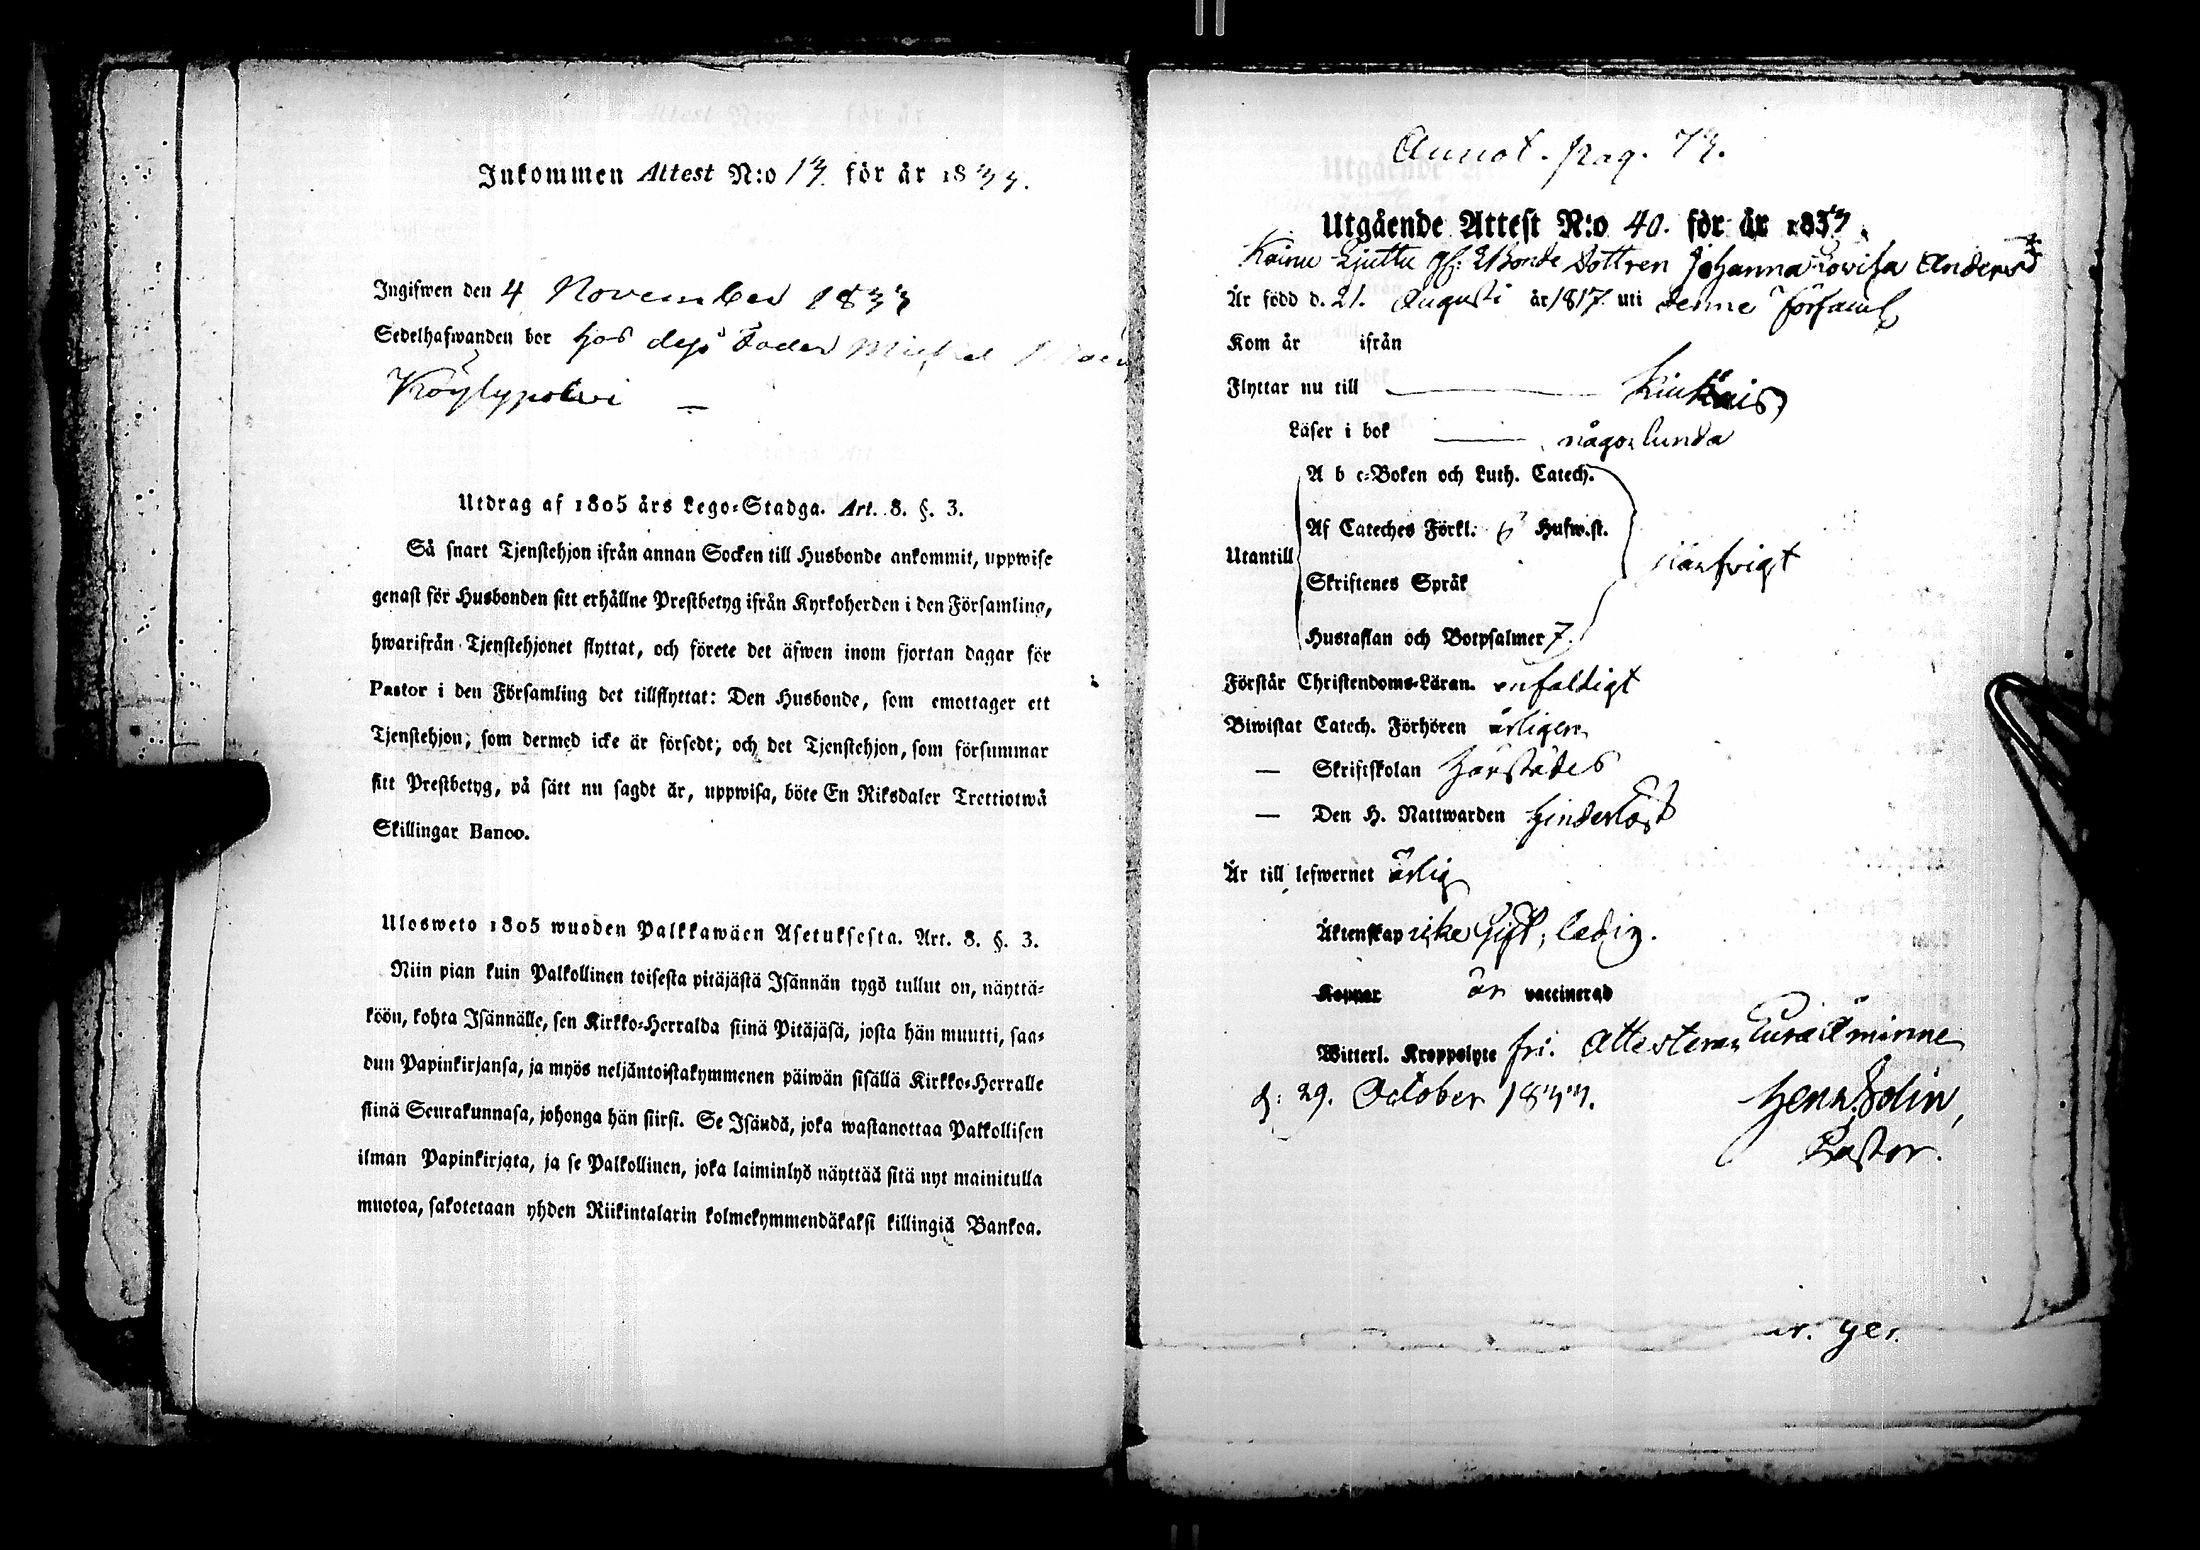 Inkommen Attest N:o 13. för år 1833.
Ingifwen den 4 November 1833
Sedelhafwanden bor hos dess Fader Michel
Köylypolvi
Utdrag af 1805 års Lego-Stadga. Art. 8. §. 3.
Så snart Tjenstehjon ifrån annan Socken till Husbonde ankommit, uppwise
genast för Husbonden sitt erhållne Prestbetyg ifrån Kyrkoherden i den Församling,
hwarifrån Tjenstehjonet flyttat, och förete det äfwen inom fjortan dagar för
Pastor i den Församling det tillflyttat: Den Husbonde, som emottager ett
Tjenstehjon, som dermed icke är försedt, och det Tjenstehjon, som försummar
sitt Prestbetyg, på sätt nu sagdt är, uppwisa, böte En Riksdaler Trettiotwå
Skillingar Banco.
Ulosweto 1805 wuoden Palkkawäen Asetuksesta. Art. 8. §. 3.
Niin pian kuin Palkollinen toisesta pitäjästä Isännän tygö tullut on, näyttä-
köön, kohta Isännälle, sen Kirkko-Herralda siinä Pitäjäsä, josta hän muutti, saa-
dun Papinkirjansa, ja myös neljäntoistakymmenen päiwän sisällä Kirkko-Herralle
siinä Seurakunnasa, johonga hän siirsi. Se Isändä, joka wastanottaa Palkollisen
ilman Papinkirjata, ja se Palkollinen, joka laiminlyö näyttää sitä nyt mainitulla
muotoa, sakotetaan yhden Riikintalarin kolmekymmendäkaksi killingiä Bankoa.
Annot. pag. 73.
Utgående Attest N:o 40. för år 1833.
Bonde Dottren Johanna Lovisa Andersd:r
Är född d. 21. Augusti år 1817. uti denne Församl
Kom år ifrån
Flyttar nu till Kiukais
Läser i bok någorlunda
A b c-Boken och Luth. Catech.
Af Cateches Förkl. Hufw.st.
Utantill
Skriftenes Språk
Hustaflan och Botpsalmer 7.
Förstår Christendoms-Läran. enfaldigt
Biwistat Catech. Förhören årligen
— Skriftskolan härstädes
— Den H. Nattwarden hinderlöst
Är till lefwernet ärlig
Äktenskap icke gift, ledig.
Koppor är vaccinerad
Witterl. Kroppslyte fri. Attesterar Euraåminne
d: 29. October 1833.
Henr. Solin,
Pastor.